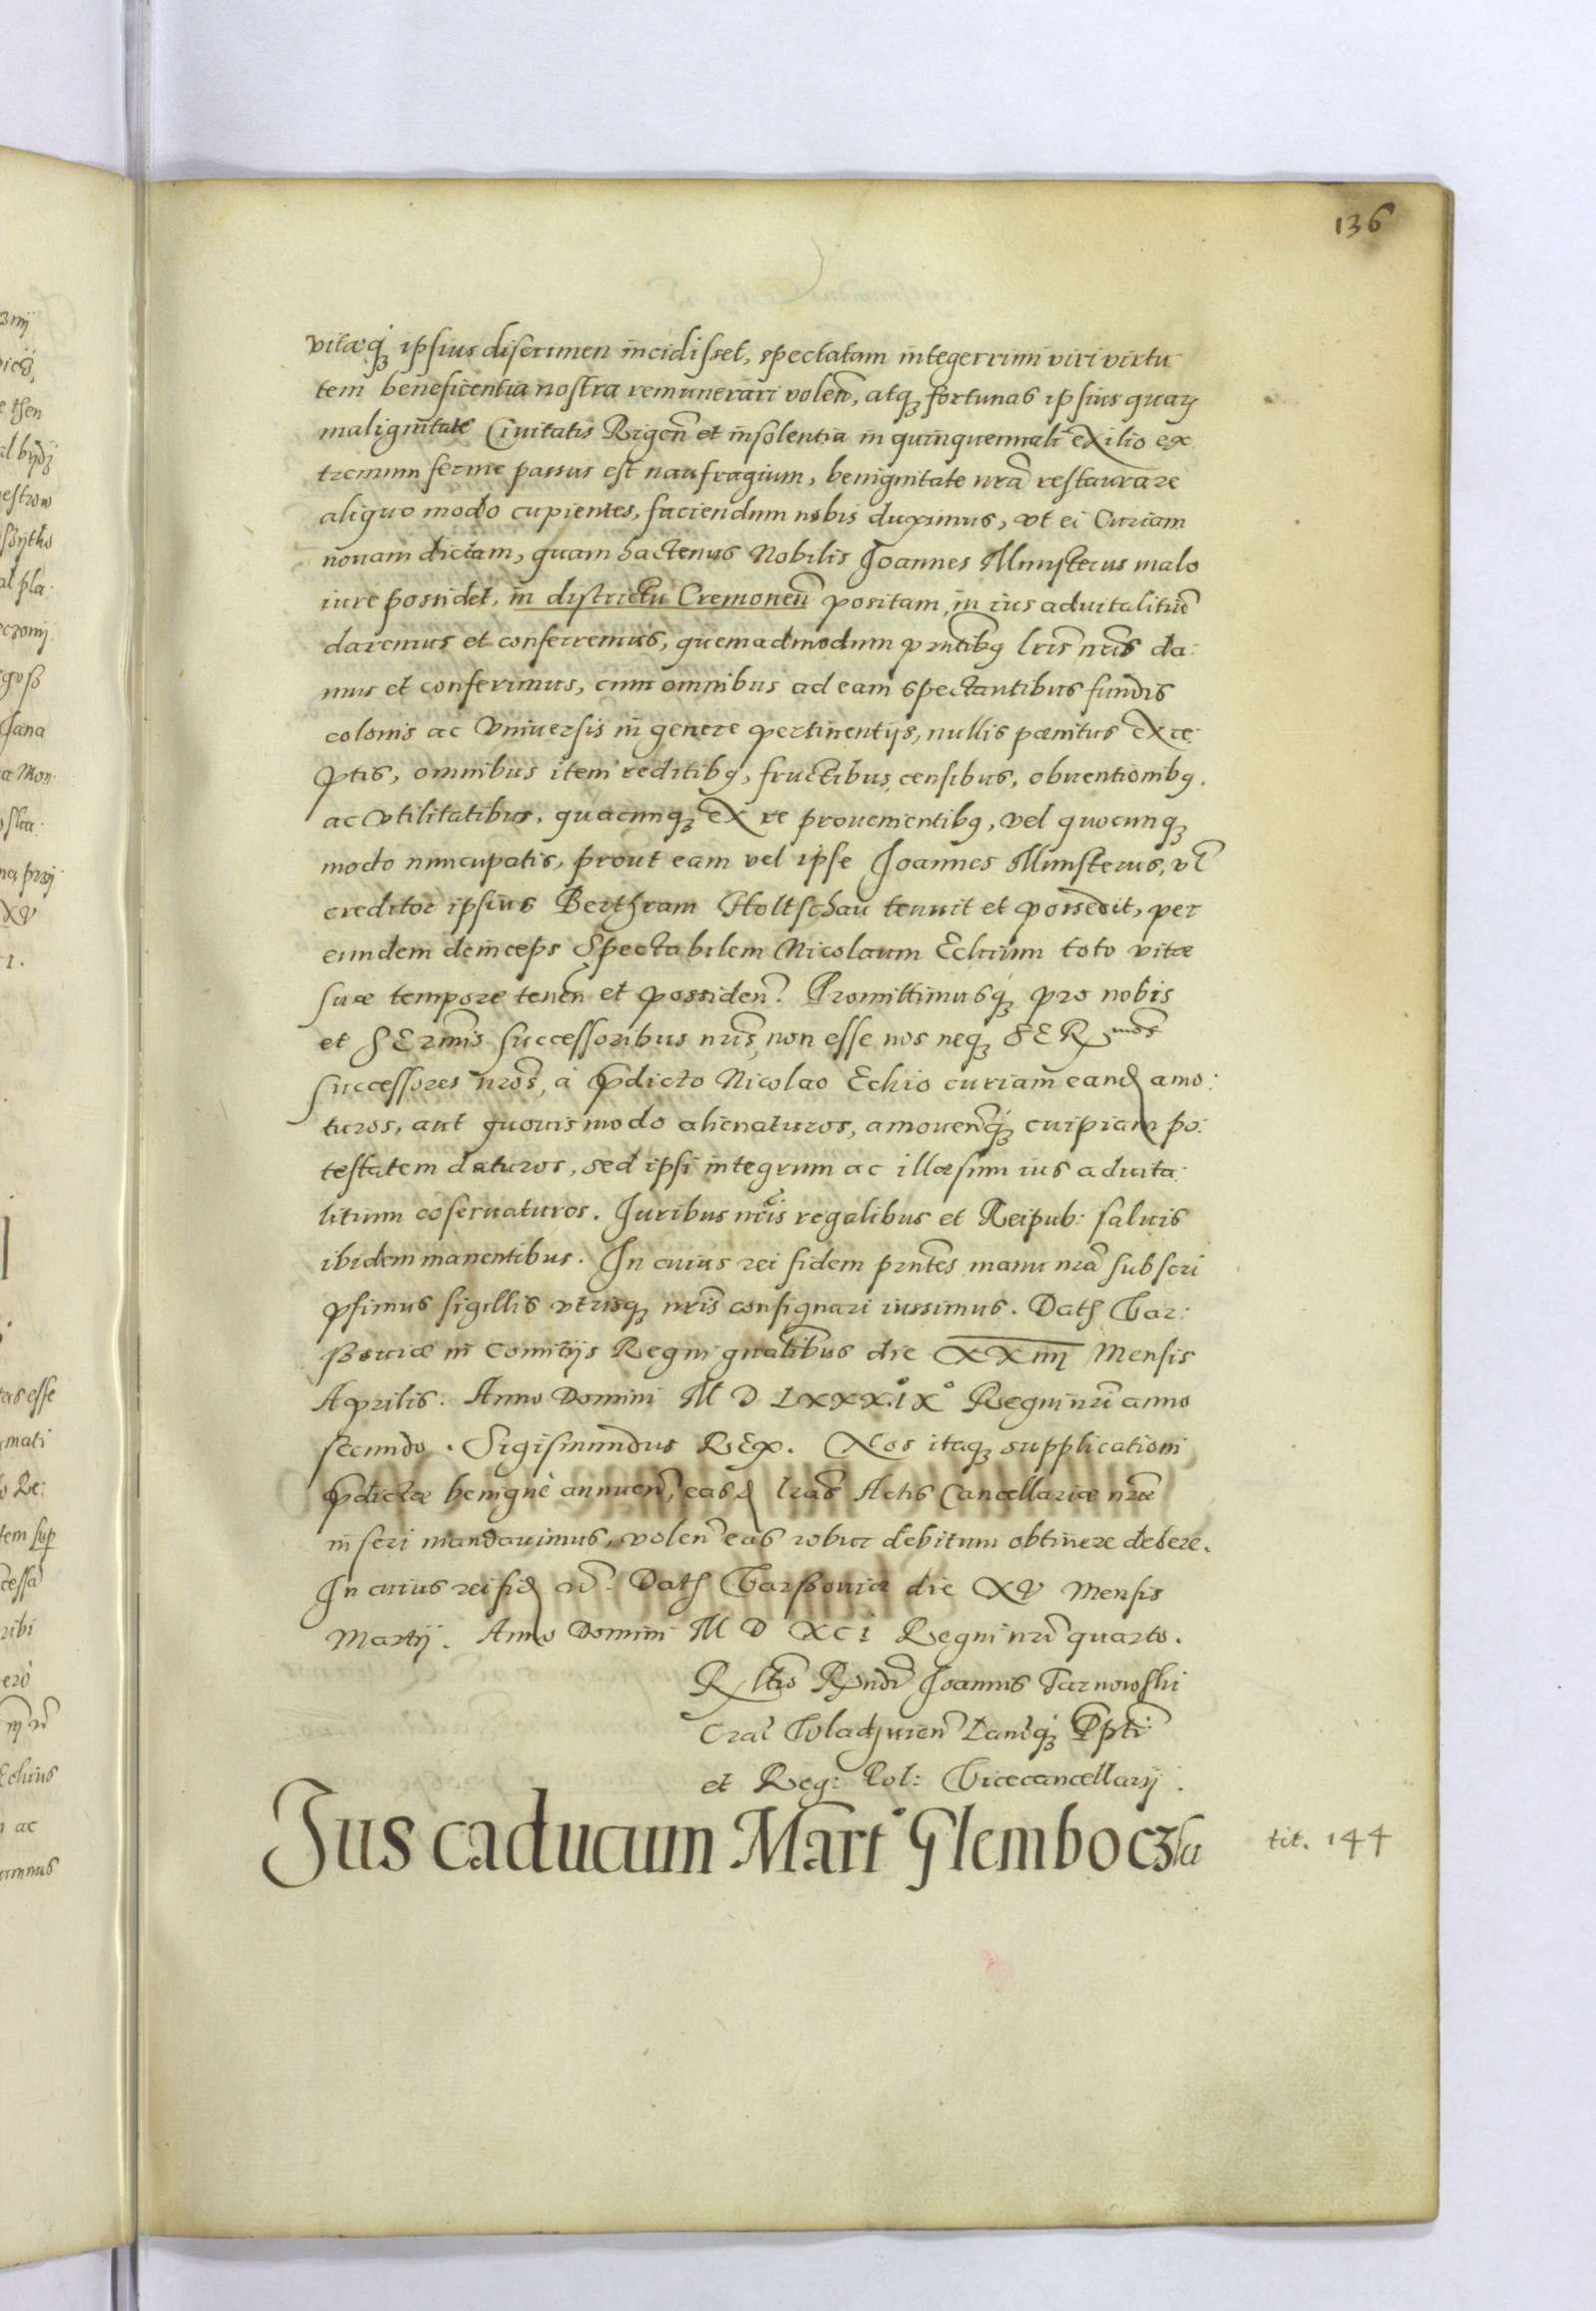 136
vitæq₃ ipsius discrimen incidisset, spectatam integerrimi viri virtu
tem beneficentia nostra remunerari volen̄, atq₃ fortunas ipsius quarū
malignitate Ciuitatis Rigen̄ et insolentia in quinquennali exilio ex
tremum ferme passus est naufragium, benignitate nr̄a restaurare
aliquo modo cupientes, faciendum nobis duximus, vt ei Curiam
nouam dictam, quam hactenus Nobilis Joannes Munsterus malo
iure possidet, in districtu Cremonen̄ positam, in ius aduitalitiū
daremus et conferremus, quemadmodum pn̄tibꝰ lr̄is nr̄is da:
mus et conferimus, cum omnibus ad eam spectantibus fundis
colonis ac Vniuersis in genere pertinentijs, nullis pænitus exce
ptis, omnibus item reditibꝰ, fructibus, censibus, obuentionibꝰ.
ac Vtilitatibus, quacunq₃ ex re prouenientibꝰ, vel quocunq₃
modo nuncupatis, prout eam vel ipse Joannes Munsterus, vl̄
creditor ipsius Berthram Holtschau tenuit et possedit, per
eundem deinceps Spectabilem Nicolaum Echium toto vitæ
suæ tempore tenen̄ et possiden̄. Promittimusq₃ pro nobis
et SEr̄mis successoribus nr̄is, non esse nos neq₃ SERmos
successores nr̄os, à p̄dicto Nicolao Echio curiam eand amo:
turos, aut quouis modo alienaturos, amouendiq₃ cuipiam po:
testatem daturos, sed ipsi integrum ac illæsum ius aduita:
litium cōseruaturos. Juribus nr̄is regalibus et Reipub: saluis
ibidem manentibus. In cuius rei fidem pn̄tes manu nr̄a subscri
psimus sigillis vtrisq₃ nr̄is consignari iussimus. Dat Var:
ßouiæ in Comitijs Regni gn̄alibus die XXIIII Mensis
Aprilis. Anno Domini M D LXXX°IX° Regni nr̄i anno
secundo. Sigismundus REx. Nos itaq₃ supplicationi
p̄dictæ benignè annuen̄, easd lr̄as Actis Cancellariæ nr̄æ
inseri mandauimus, volen̄ eas robur debitum obtinere debere.
In cuius rei fid &c. Dat Varßouiæ die XV Mensis
Martij. Anno Domini M D XCI Regni nr̄i quarto.
Rl̄tio Rn̄di Joannis Tarnowski
Cral Vladzuien̄ Lanciq₃ Pp̄ti
et Reg: Pol: Vicecancellarij.
Jus caducum Marī Glemboczka
tit. 144